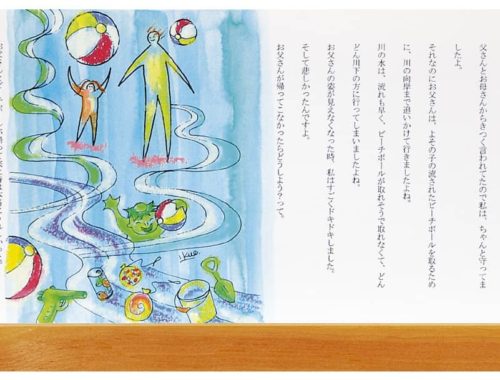 父さんとお母さんからきつく言われてたので私は、ちゃんと守ってま
したよ。
それなのにお父さんは、よその子の流されたビーチボールを取るため
に、川の向岸まで追いかけて行きましたよね。
川の水は、流れも早く、ビーチボールが取れそうで取れなくて、どん
どん川下の方に行ってしまいましたよね。
お父さんの姿が見えなくなった時、私はすごくドキドキしました。
そして悲しかったんですよ。
お父さんが帰ってこなかったらどうしよう？って。